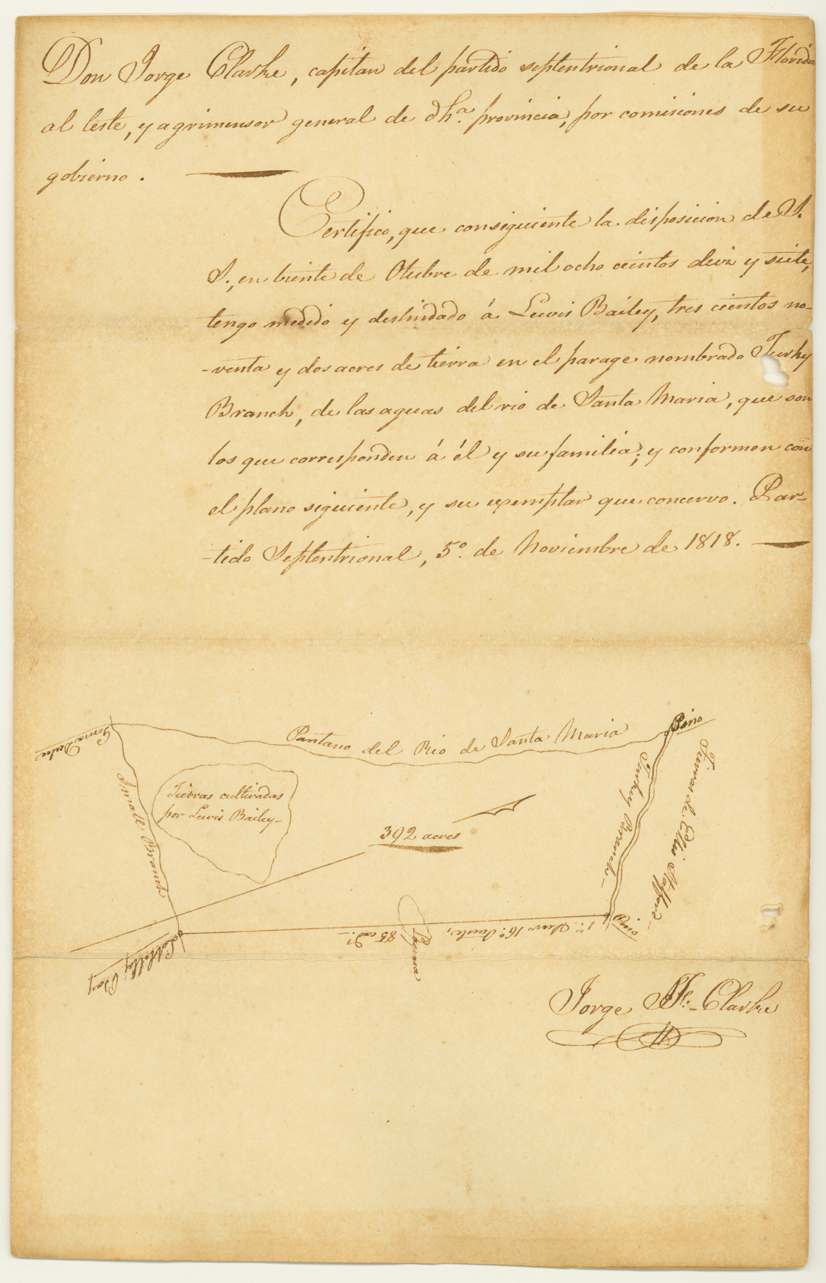 Don Jorge Clarke, capitan del partido septentrional de la Florida
al leste, y agrimensor general de dha. provincia, por comisiones de su
gobierno.
Certifico, que consiguiente la disposicion de S.
S., en biente de Otubre de mil ocho cientos diez y siete,
tengo medido y deslindado á Lewis Bailey, tres cientos no-
-venta y dos acres de tierra en el parage nombrado Turky
Branch, de las aguas del rio de Santa Maria, que son
los que corresponden á él y su familia; y conformen con
el plano siguiente, y su exemplar que concervo. Par-
-tido Septentrional, 5º. de Noviembre de 1818.
Goma Dulce
Pantano del Rio de Santa Maria
Pino
Small Branch
Tierras cultivadas
por Lewis Bailey
392 acres
Turkey Branch
Tierras de
Stafford
Pino
85
Bay
Jorge J. F. Clarke